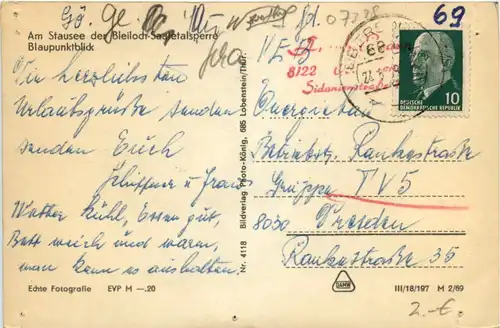 Am Stausee der Bleiloch-Saaletalsperre
Blaupunktblick
69
Die herzlichsten
Urlaubsgrüße senden
senden Euch
und Franz
Wetter kühl, Essen gut,
Bett weich und warm,
man kann es aushalten.
Bildverlag Photo-König, 685 Lobenstein/Thür.
Nr. 4118
8122
Sidonienstraße
DEUTSCHE
DEMOKRATISCHE REPUBLIK
10
VEB
Energiebau
Betriebst. Rankestraße
Gruppe TV5
8030 Dresden
Rankestraße 35
Echte Fotografie EVP M —.20
DAMW
III/18/197 M 2/69
2.-€